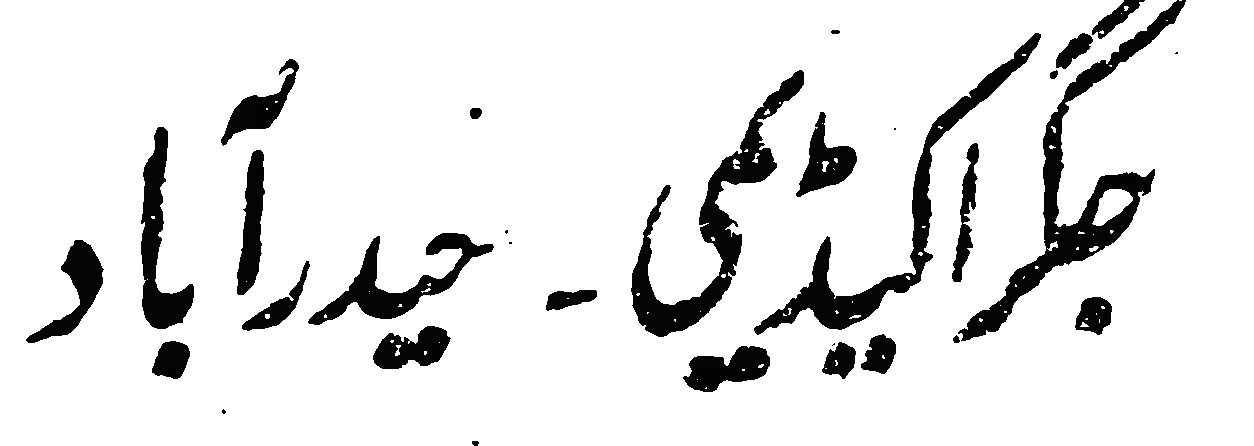 جگر اکیڈیمی - حیدرآباد